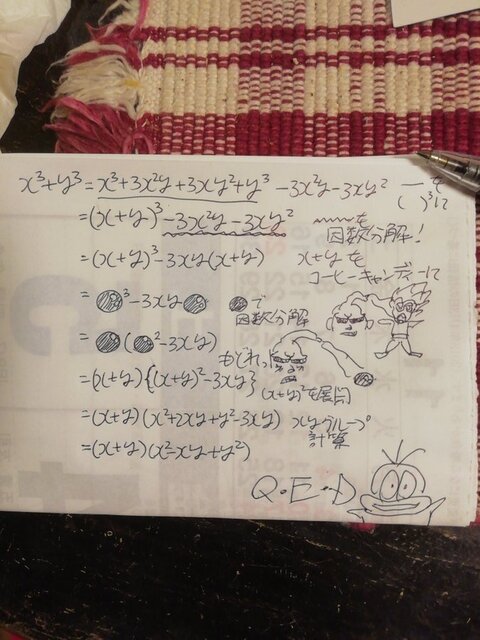 x³+y³=x³+3x²y+3xy²+y³-3x²y-3xy² ―を( )³に
=(x+y)³-3x²y-3xy² 〰〰を因数分解!
=(x+y)³-3xy(x+y) x+yをコーヒーキャンディーに
=●³-3xy● ●で因数分解
=●(●²-3xy) もどれっ
=(x+y){(x+y)²-3xy} (x+y)²を展開
=(x+y)(x²+2xy+y²-3xy) xyグループ計算
=(x+y)(x²-xy+y²)
Q・E・D